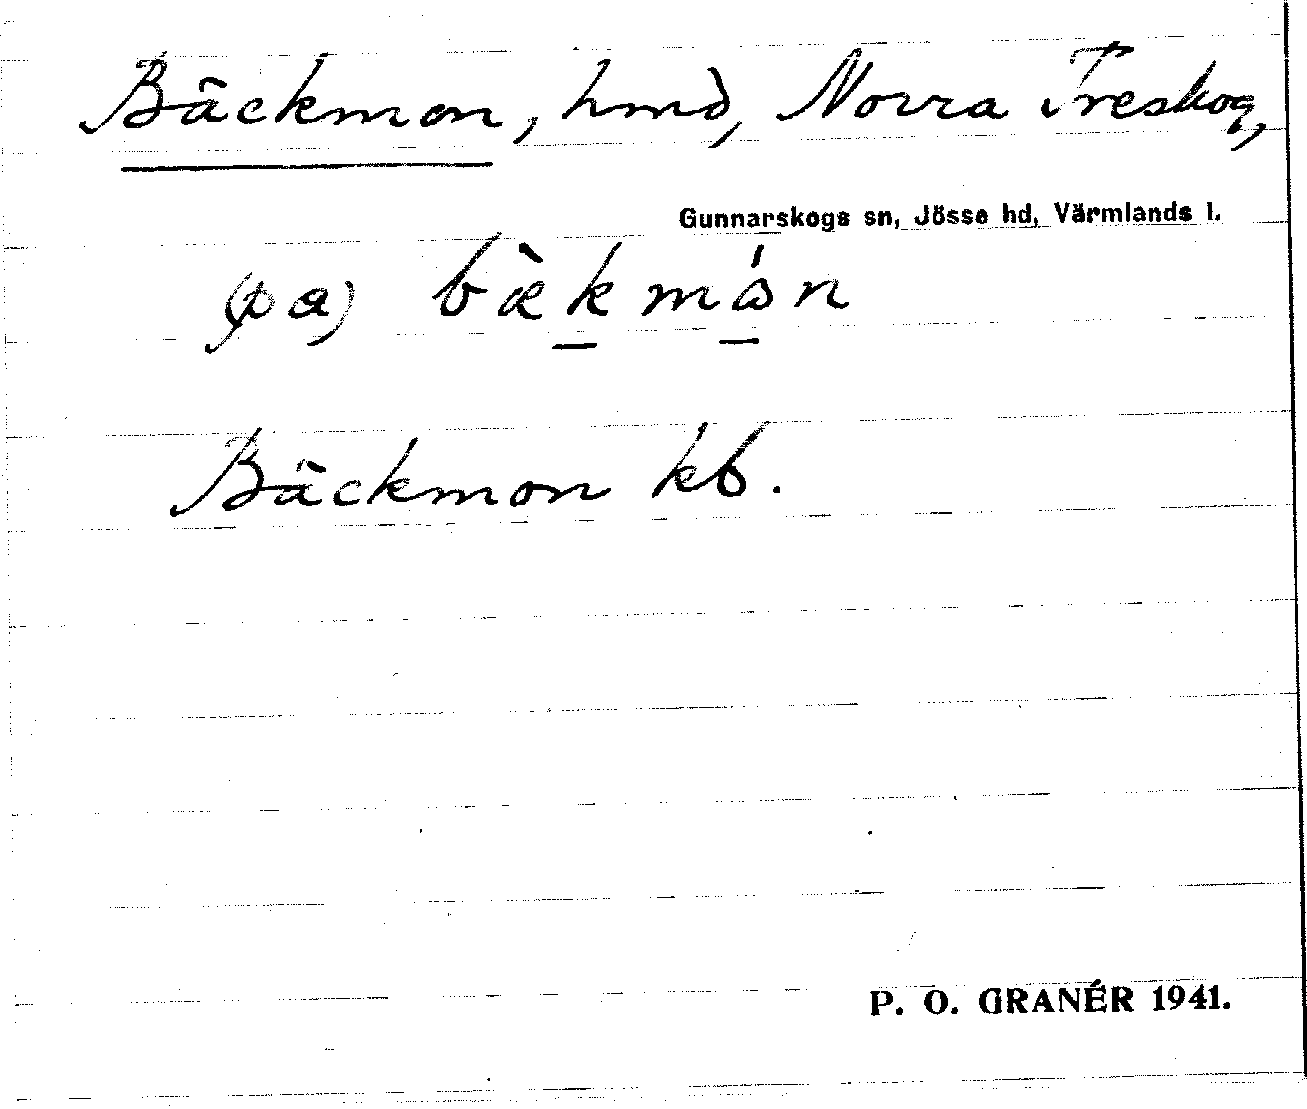 Bäckmon, hmd, Norra Treskog,
Gunnarskogs sn, Jösse hd, Värmlands l.
(pa) bæ̀kmón
Bäckmon kb.
P. O. GRANÉR 1941.